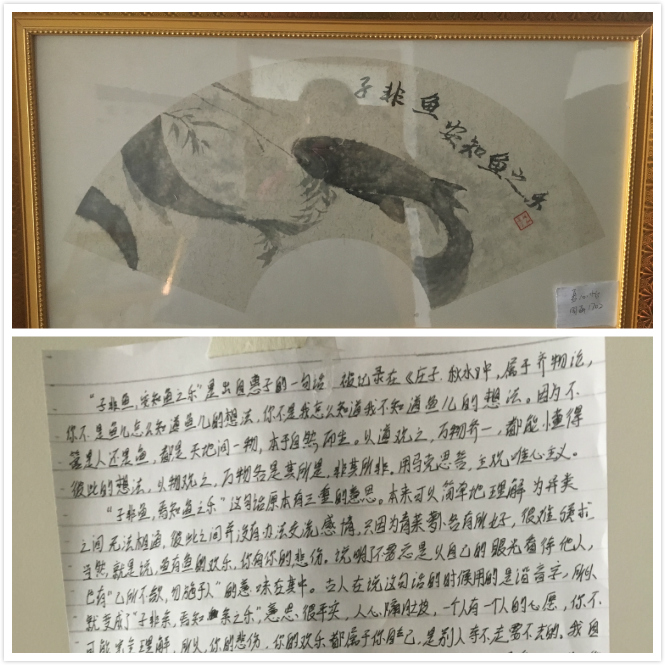 子非鱼
安知鱼之乐
"子非鱼,安知鱼之乐"是出自惠子的一句话 被记录在《庄子·秋水》中,属于齐物论,
你不是鱼儿怎么知道鱼儿的想法,你不是我怎么知道我不知道鱼儿的想法。因为不
管是人还是鱼,都是天地间一物,本于自然而生。以道观之,万物齐一,都能懂得
彼此的想法,以物观之,万物各是其所是,非其所非,用马克思答,主观唯心主义。
"子非鱼,焉知鱼之乐"这句话原本有三重的意思。本来可以简单地理解为异类
之间无法相通,彼此之间并没有办法交流感情,只因为青菜萝卜各有所好,很难强求
当然,就是说,鱼有鱼的欢乐,你有你的悲伤。说明不要总是以自己的眼光看待他人,
也有"己所不欲,勿施于人"的意味在其中。古人在说这句话的时候用的是谐音字,所以
就变成了"子非余,焉知余之乐",意思很平实,人心隔肚皮,一个人有一个人的心愿,你不
可能完全理解,所以,你的悲伤,你的欢乐都属于你自己,是别人夺不走要不去的。我自